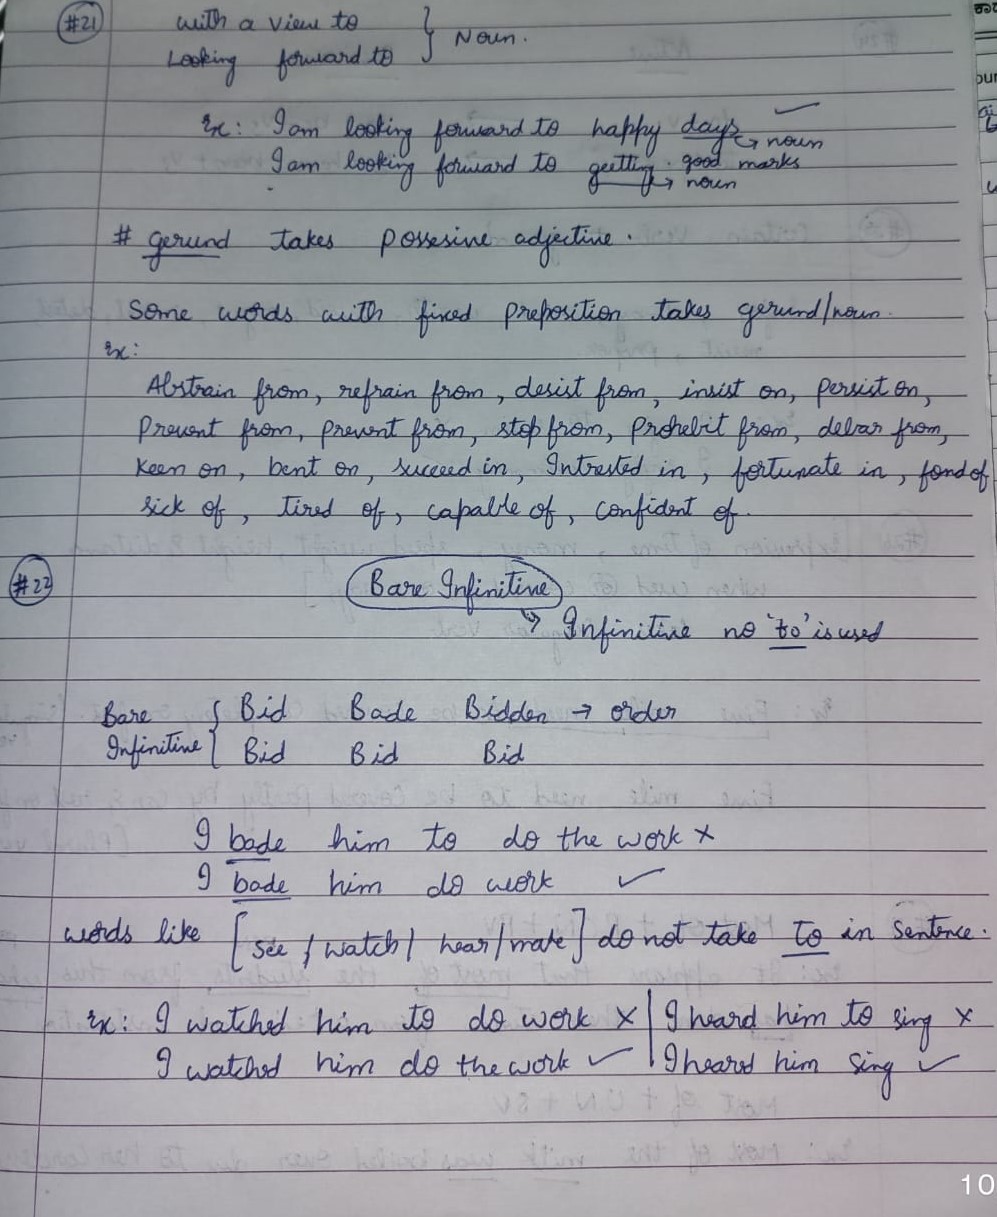 #21 with a view to } Noun.
Looking forward to
Ex: I am looking forward to happy days ✓
↳ noun
I am looking forward to geetting good marks
↳ noun
# gerund takes possesine adjective.
Some words with fixed preposition takes gerund/noun.
Ex:
Abstrain from, refrain from, desist from, insist on, persist on,
Prevent from, prevent from, stop from, Prohebit from, debar from,
Keen on, bent on, succeed in, Intrested in, fortunate in, fond of
sick of, tired of, capable of, confident of.
#22 Bare Infinitive
↳ Infinitive no 'to' is used
Bare { Bid Bade Bidden → order
Infinitive Bid Bid Bid
I bade him to do the work ×
I bade him do work ✓
words like [see / watch / hear / make] do not take to in sentence.
Ex: I watched him to do work × | I heard him to sing ×
I watched him do the work ✓ | I heard him sing ✓
10